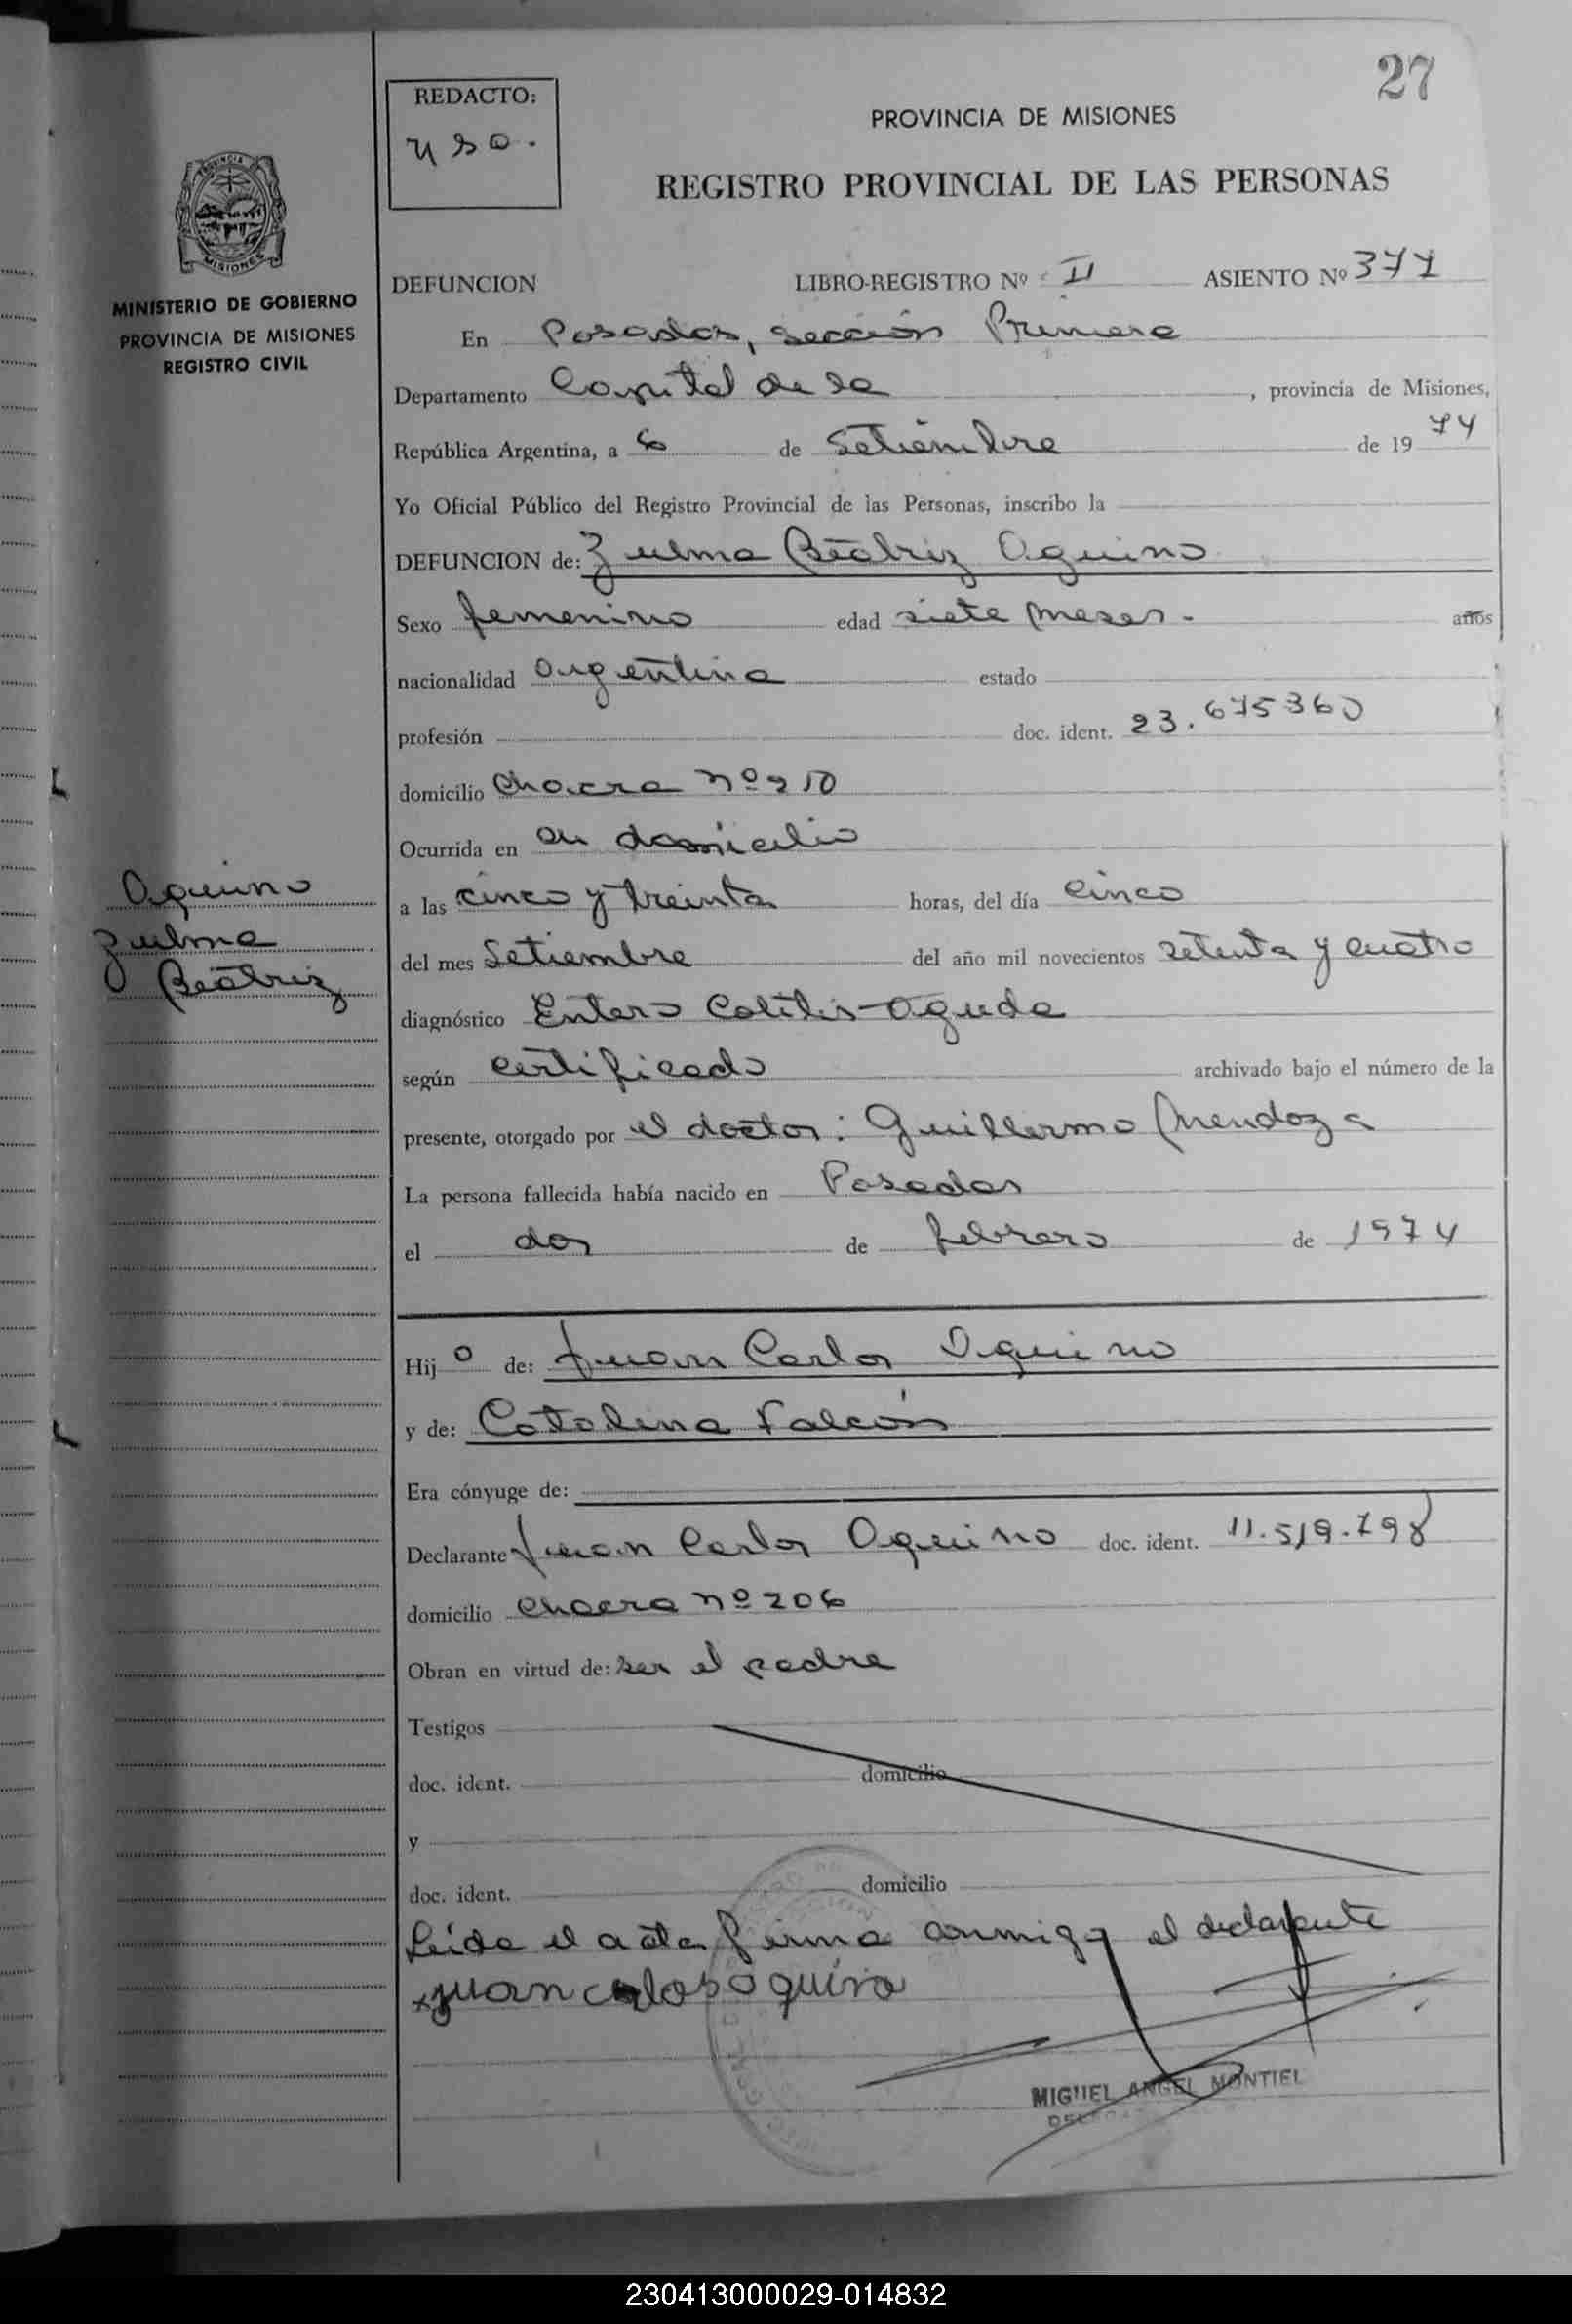 27
REDACTO:
PROVINCIA DE MISIONES
REGISTRO PROVINCIAL DE LAS PERSONAS
PROVINCIA
MISIONES
MINISTERIO DE GOBIERNO
PROVINCIA DE MISIONES
REGISTRO CIVIL
DEFUNCION LIBRO-REGISTRO Nº II ASIENTO Nº 377
En Posadas, sección Primera
Departamento Capital de la , provincia de Misiones,
República Argentina, a 6 de Setiembre de 19 74
Yo Oficial Público del Registro Provincial de las Personas, inscribo la
DEFUNCION de: Zulma Beatriz Aquino
Sexo femenino edad siete meses.- años
nacionalidad argentina estado
profesión doc. ident. 23.675360
domicilio chacra nº 210
Ocurrida en su domicilio
a las cinco y treinta horas, del día cinco
del mes Setiembre del año mil novecientos setenta y cuatro
Aquino
Zulma
Beatriz
diagnóstico Entero Colitis-aguda
según certificado archivado bajo el número de la
presente, otorgado por el doctor: Guillermo Mendoza
La persona fallecida había nacido en Posadas
el dos de febrero de 1974
Hij o de: Juan Carlos Aquino
y de: Catalina Falcón
Era cónyuge de:
Declarante Juan Carlos Aquino doc. ident. 11.519.798
domicilio chacra nº 206
Obran en virtud de: ser el padre
Testigos
doc. ident. domicilio
y
doc. ident. domicilio
Leída el acta firma conmigo el declarante
x juan carlos aquino
MIGUEL ANGEL MONTIEL
230413000029-014832